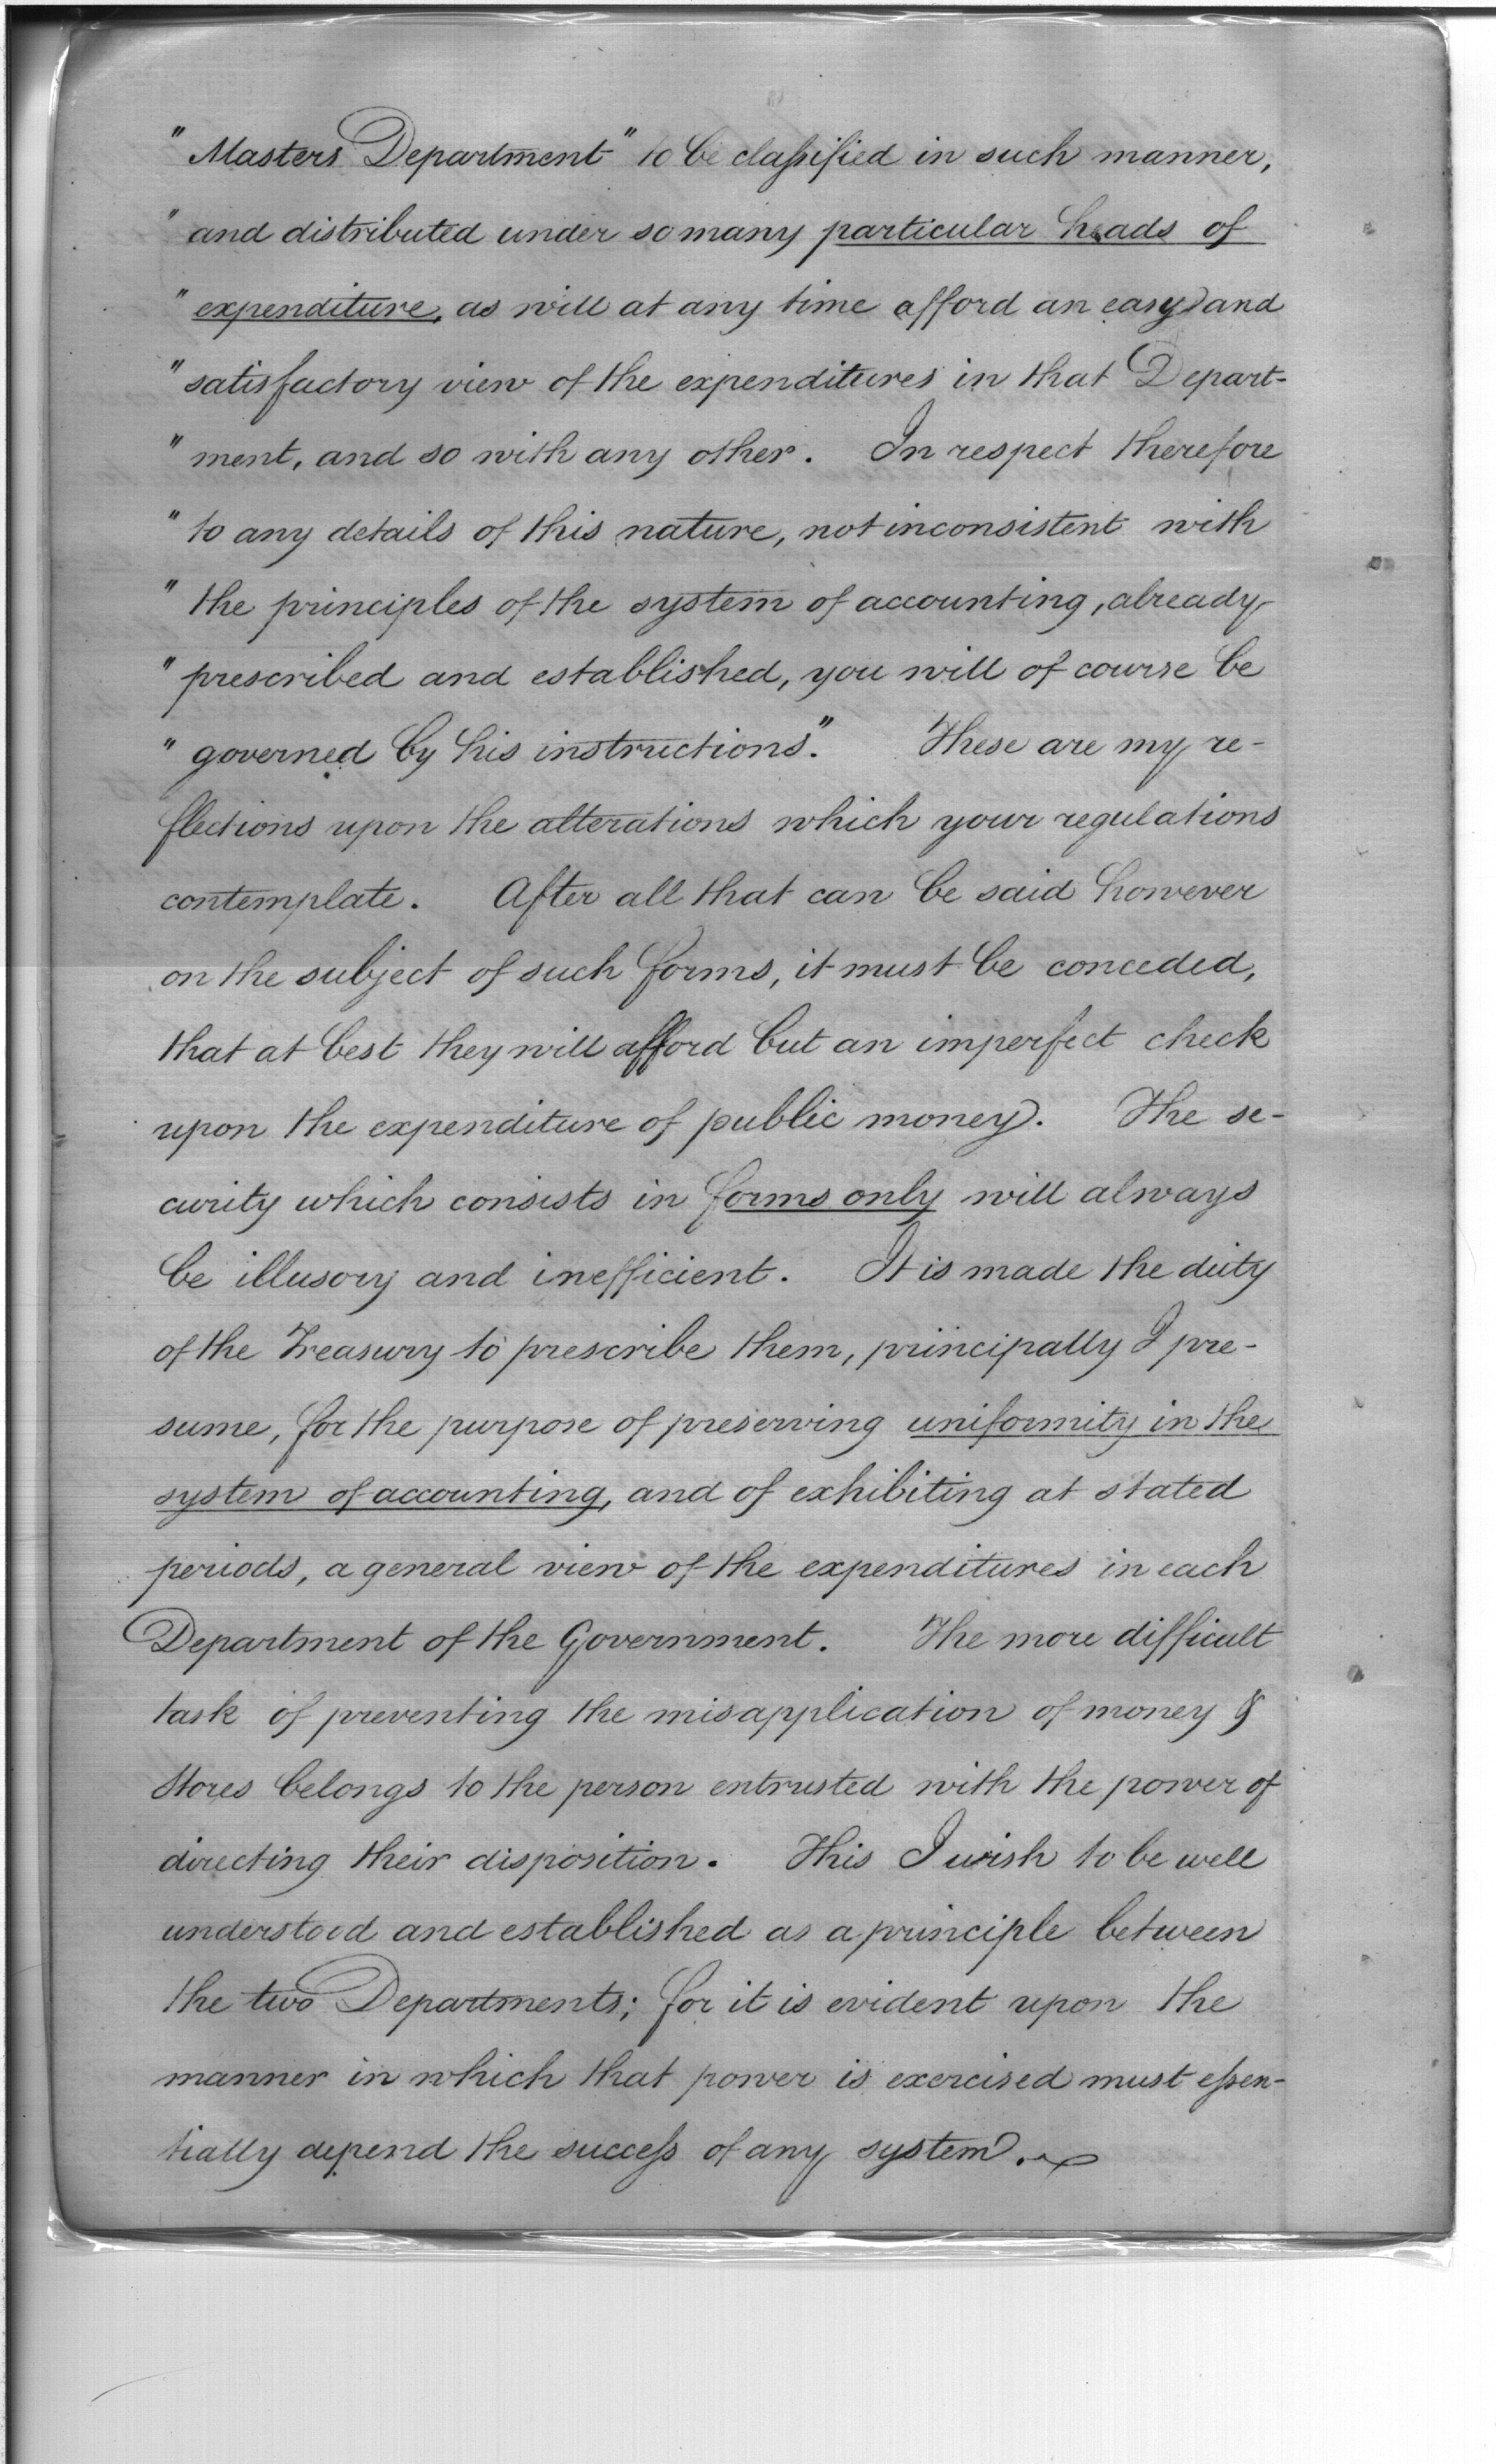 "Masters Department" to be classified in such manner,
"and distributed under so many particular heads of
"expenditure, as will at any time afford an easy and
"satisfactory view of the expenditures in that Depart-
"ment, and so with any other. In respect therefore
"to any details of this nature, not inconsistent with
"the principles of the system of accounting, already
"prescribed and established, you will of course be
"governed by his instructions". These are my re-
flections upon the alterations which your regulations
contemplate. After all that can be said however
on the subject of such forms, it must be conceded,
that at best they will afford but an imperfect check
upon the expenditure of public money. The se-
curity which consists in forms only will always
be illusory and inefficient. It is made the duty
of the Treasury to prescribe them, principally I pre-
sume, for the purpose of preserving uniformity in the
system of accounting, and of exhibiting at stated
periods, a general view of the expenditures in each
Department of the Government. The more difficult
task of preventing the misapplication of money &
Stores belongs to the person entrusted with the power of
directing their disposition. This I wish to be well
understood and established as a principle between
the two Departments; for it is evident upon the
manner in which that power is exercised must essen-
tially depend the success of any system.